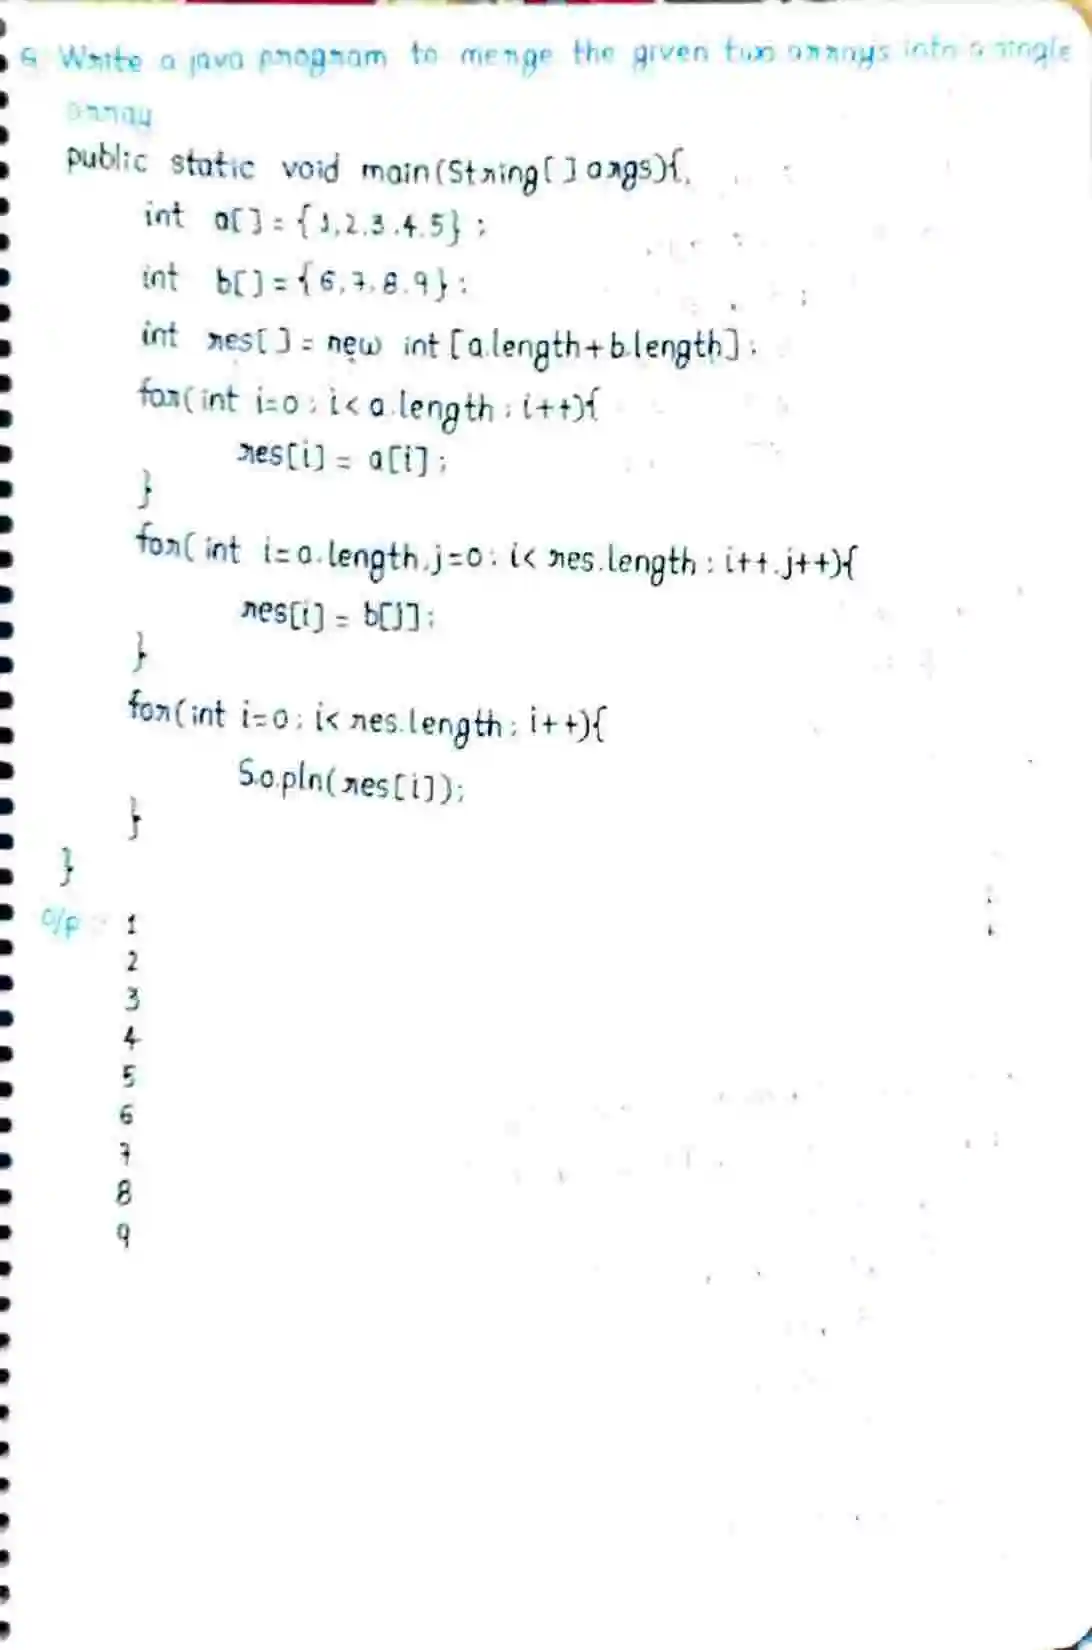 Q Write a java program to merge the given two arrays into a single
array
public static void main(String[] args){
int a[] = {1,2,3,4,5};
int b[] = {6,7,8,9};
int res[] = new int [a.length+b.length];
for(int i=0; i<a.length; i++){
res[i] = a[i];
}
for(int i=a.length,j=0; i<res.length; i++,j++){
res[i] = b[j];
}
for(int i=0; i<res.length; i++){
S.o.pln(res[i]);
}
}
O/P - 1
2
3
4
5
6
7
8
9